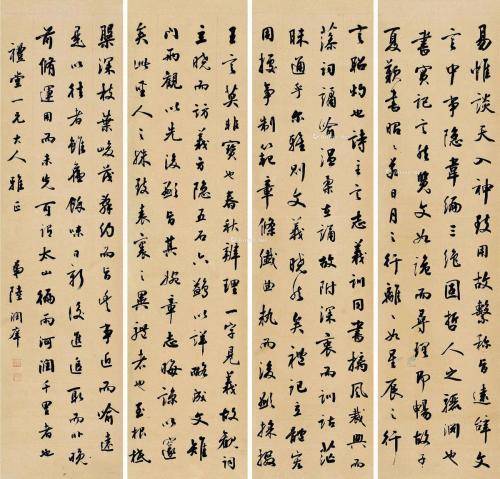 易惟談天入神致用故繫稱旨遠辭文
言中事隱韋編三絕固哲人之驪淵也
書實記言然覽文如詭而尋理即暢故子
夏歎書昭昭若日月之行離離如星辰之行
言昭灼也詩主言志義訓同書摛風裁興而
藻詞譎喻溫柔在誦故附深衷而訓詁茫
昧通乎爾雅則文義曉然矣禮記立體宏
用據事制範章條纖曲執而後顯採掇
王言莫非寶也春秋辨理一字見義故觀詞
立曉而訪義方隱五石六鷁以詳略成文雉
門兩觀以先後顯旨其婉章志晦諒以邃
矣此聖人之殊致表裏之異體者也至根柢
槃深枝葉峻茂辭約而旨豐事近而喻遠
是以往者雖舊餘味日新後進追取而非晚
前脩運用而未先可謂太山徧雨河潤千里者也
禮堂一兄大人雅正
弟陸潤庠